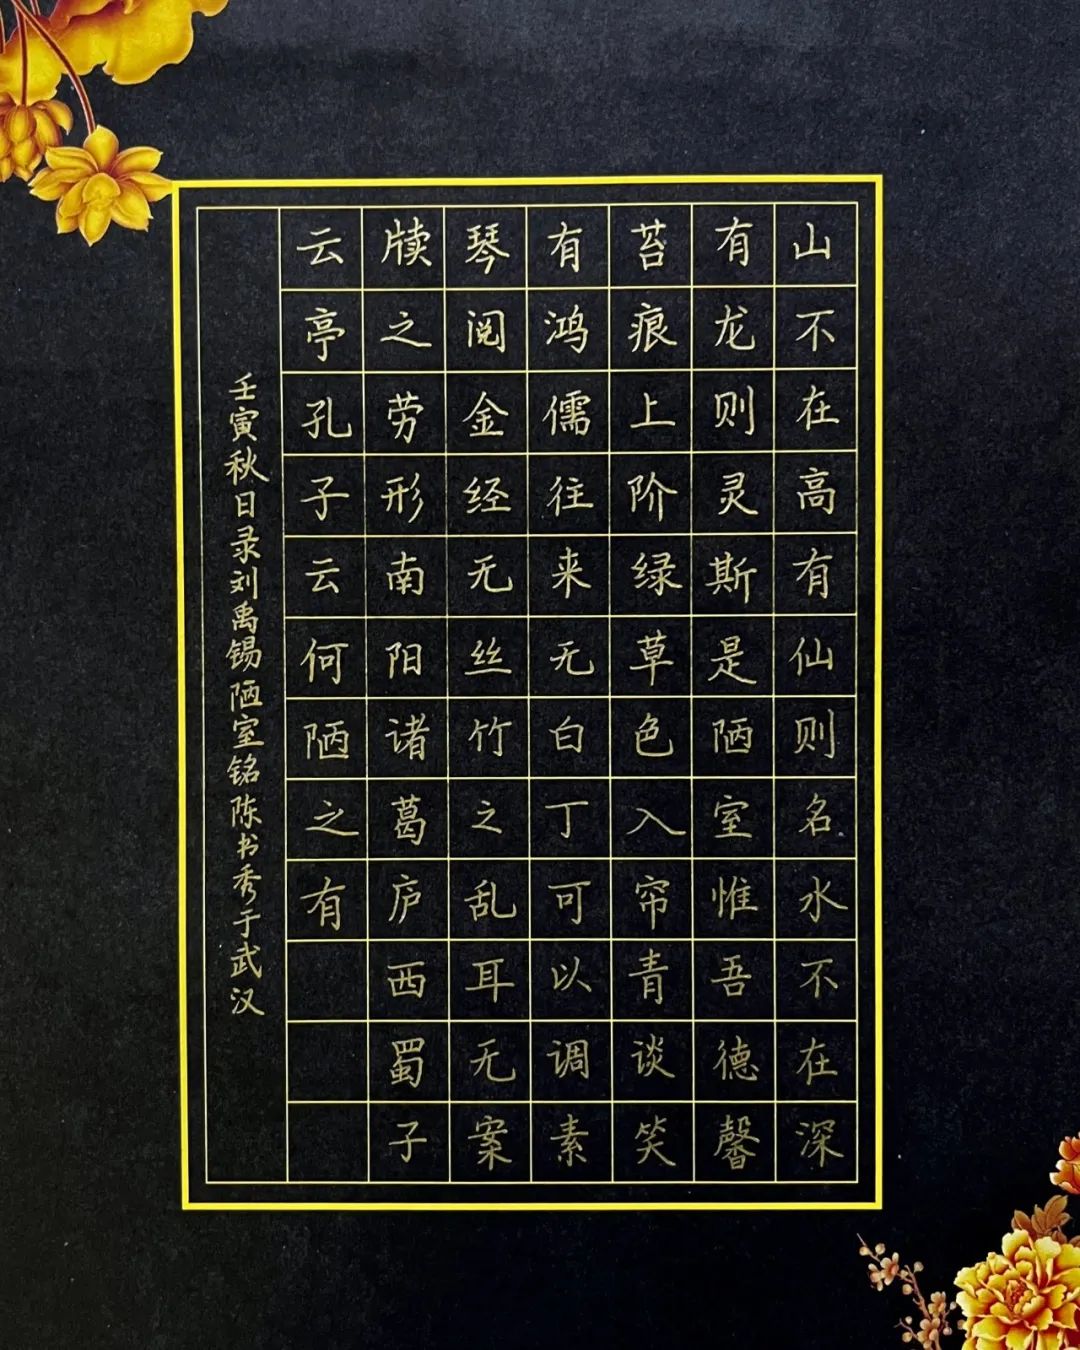 山不在高有仙则名水不在深
有龙则灵斯是陋室惟吾德馨
苔痕上阶绿草色入帘青谈笑
有鸿儒往来无白丁可以调素
琴阅金经无丝竹之乱耳无案
牍之劳形南阳诸葛庐西蜀子
云亭孔子云何陋之有
壬寅秋日录刘禹锡陋室铭陈书秀于武汉